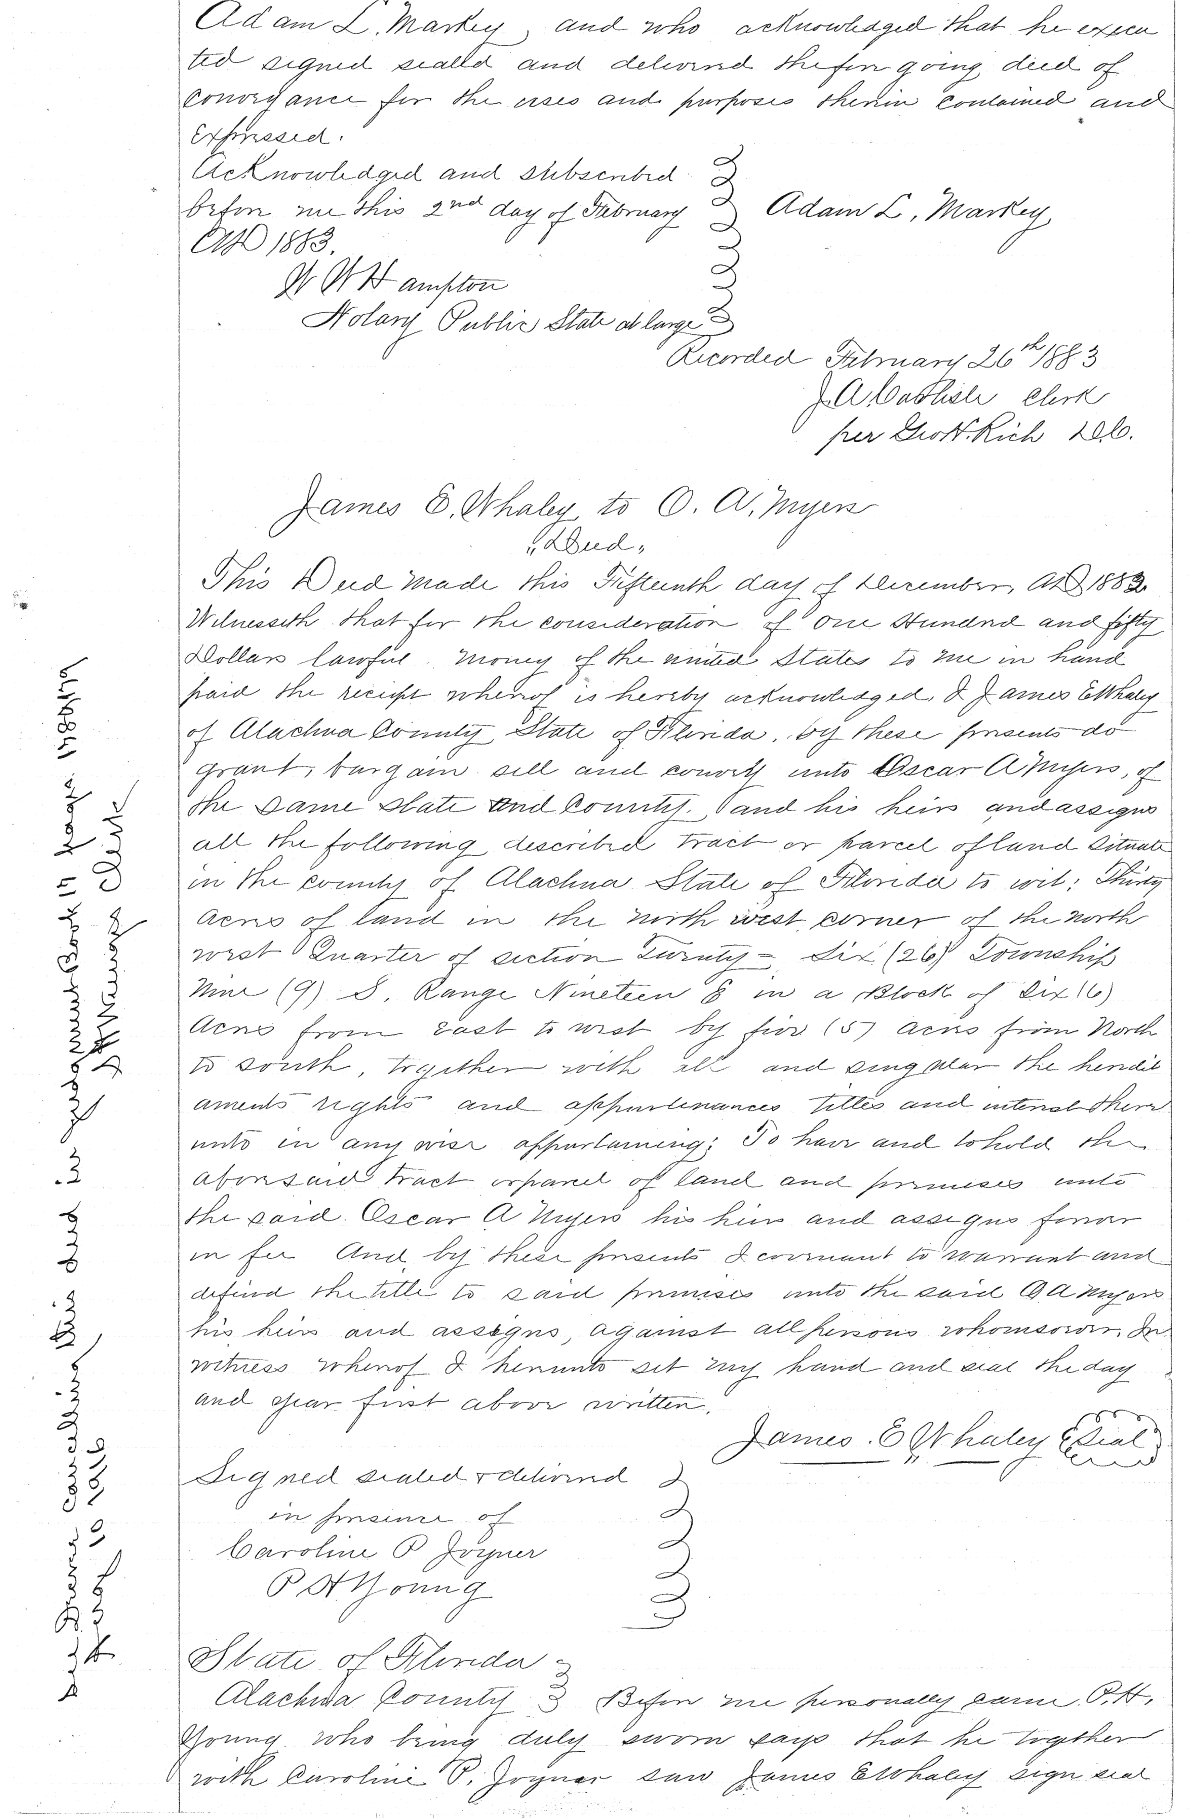 Adam L. Markey, and who acknowledged that he execu
ted signed sealed and delivered the fore going deed of
conveyance for the uses and purposes therein contained and
expressed.
Acknowledged and subscribed
before me this 2nd day of February
Adam L. Markey
AD 1883.
W W Hampton
Notary Public State at large
Recorded February 26th 1883
J. A. Carlisle Clerk
per Geo H. Rich D.C.
James E. Whaley to O. A. Myers
"Deed"
This Deed made this Fifteenth day of December, AD 1882
Witnesseth that for the consideration of One Hundred and fifty
Dollars lawful money of the united States to me in hand
paid the reciept whereof is hereby acknowledged, I James E Whaley
of Alachua County State of Florida, by these presents do
grant, bargain sell and convey unto Oscar A Myers, of
the same state and County. and his heirs and assigns
all the following described tract or parcel of land situate
in the county of Alachua State of Florida to wit: Thirty
Acres of land in the north west corner of the north
west Quarter of section Twenty-Six (26) Township
Nine (9) S. Range Nineteen E in a Block of Six (6)
Acres from east to west by five (5) acres from North
to south, together with all and singular the heredit
aments rights and appurtenances titles and interest there
unto in any wise appurtaining; To have and to hold the
abovesaid tract or parcel of land and premises unto
the said Oscar A Myers his heirs and assigns forever
in fee And by these presents I covenant to warrant and
defend the title to said premises unto the said O A Myers
his heirs and assigns, against all persons whomsoever. In
witness whereof I hereunto set my hand and seal the day
and year first above written.
James. E Whaley Seal
Signed sealed & delivered
in presence of
Caroline P Joyner
P H Young
State of Florida
Alachua County Before me personally came P. H.
Young who being duly sworn says that he together
with Caroline P. Joyner saw James E Whaley sign seal